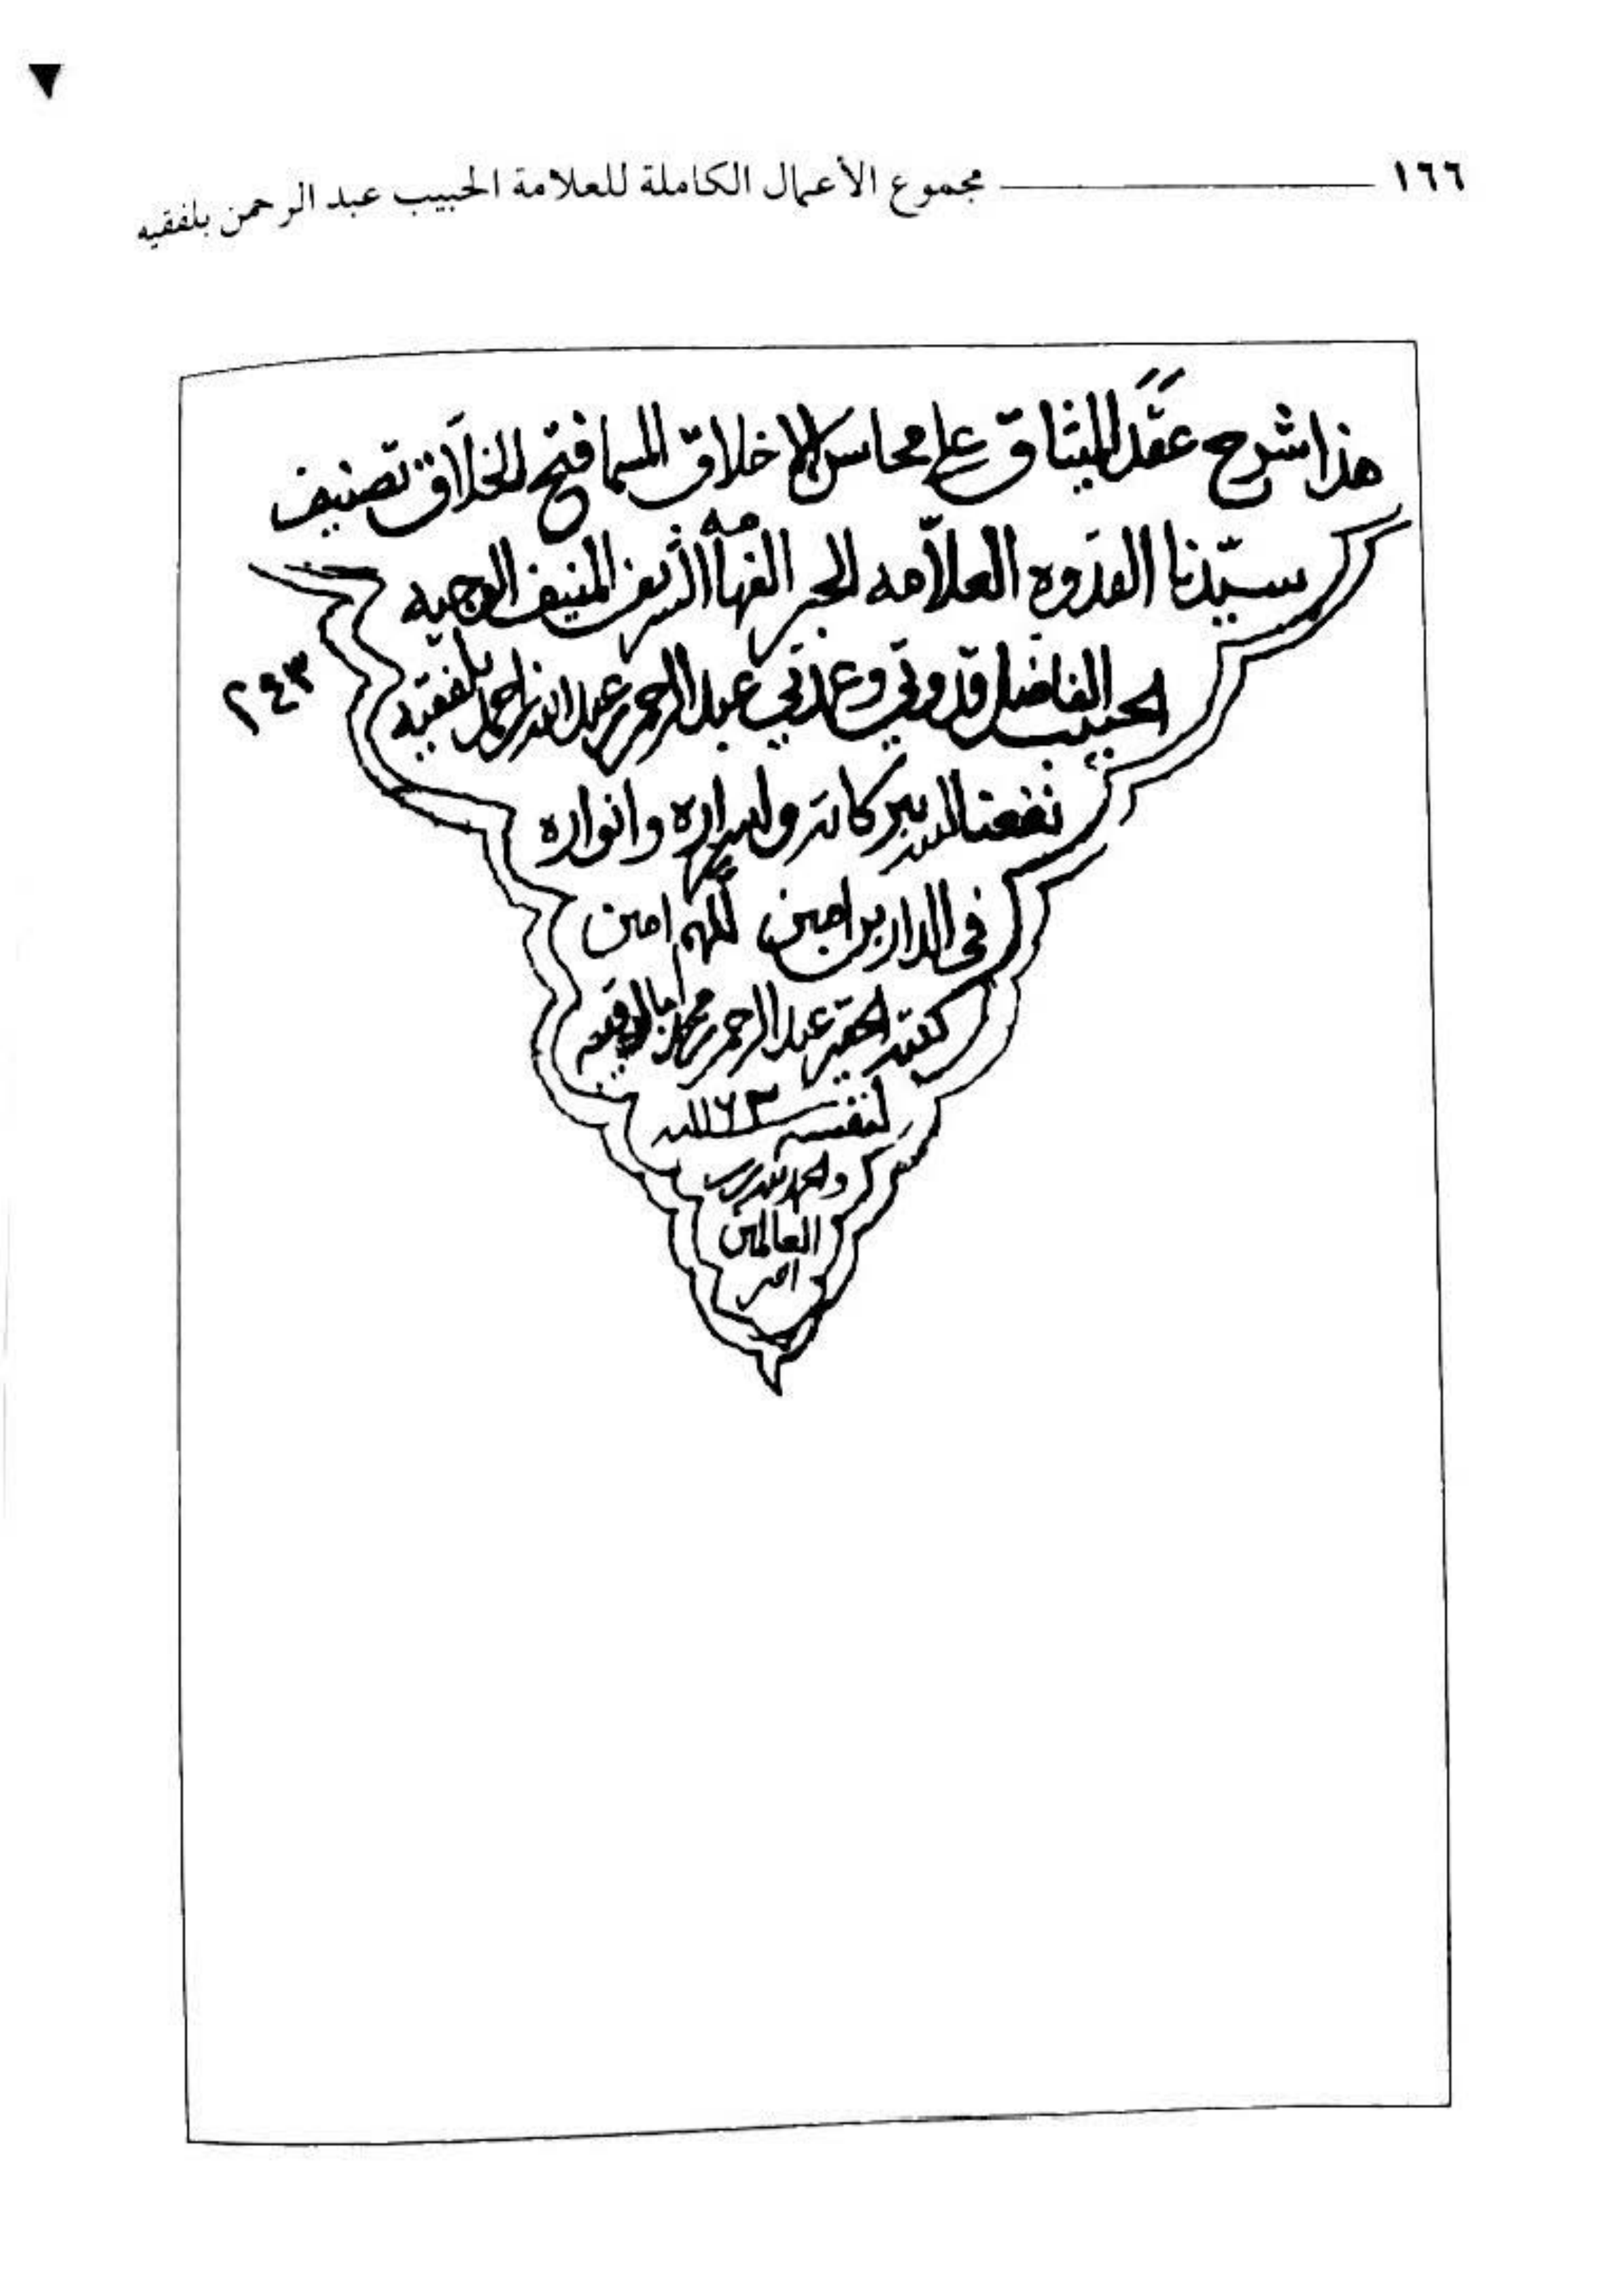 ١٦٦ مجموع الأعمال الكاملة للعلامة الحبيب عبد الرحمن بلفقيه
هذا شرح عقد الميثاق على محاسن الاخلاق المسما فتح الخلاق تصنيف
سيدنا القدوه العلامه الحبر الفهامه الشريف المنيف الوجيه
الحبيب الفاضل قدوتي وعمدتي عبد الرحمن بن عبد الله بن احمد بلفقيه
٢٤٣
نفعنا الله ببركاته واسراره وانواره
في الدارين امين اللهم امين
كتبه الحقير عبد الرحمن محمد
لنفسه سنه ١١٦٣
والحمد لله رب
العالمين
امين